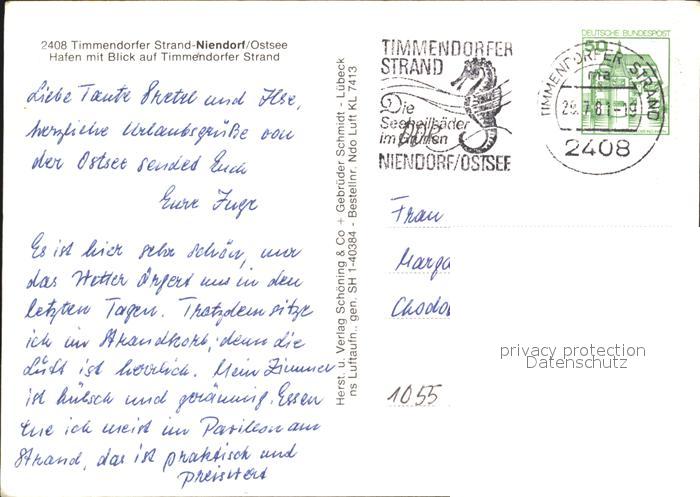 2408 Timmendorfer Strand-Niendorf/Ostsee
Hafen mit Blick auf Timmendorfer Strand
Liebe Tante Gretel und Ilse,
herzliche Urlaubsgrüße von
der Ostsee sendet Euch
Eure Inge
Es ist hier sehr schön, nur
das Wetter ärgert uns in den
letzten Tagen. Trotzdem sitze
ich im Strandkorb, denn die
Luft ist herrlich. Mein Zimmer
ist hübsch und geräumig. Essen
tue ich meist im Pavillon am
Strand, das ist praktisch und
preiswert
Herst. u. Verlag Schöning & Co + Gebrüder Schmidt - Lübeck
ns Luftaufn., gen. SH 1-40384 - Bestellnr. Ndo Luft KL 7413
TIMMENDORFER
STRAND
Die
Seeheilbäder
im Grünen
NIENDORF/OSTSEE
DEUTSCHE BUNDESPOST
50
TIMMENDORFER STRAND
ma
29.7.81-19
2408
Frau
Marga
Chodo
1055
privacy protection
Datenschutz